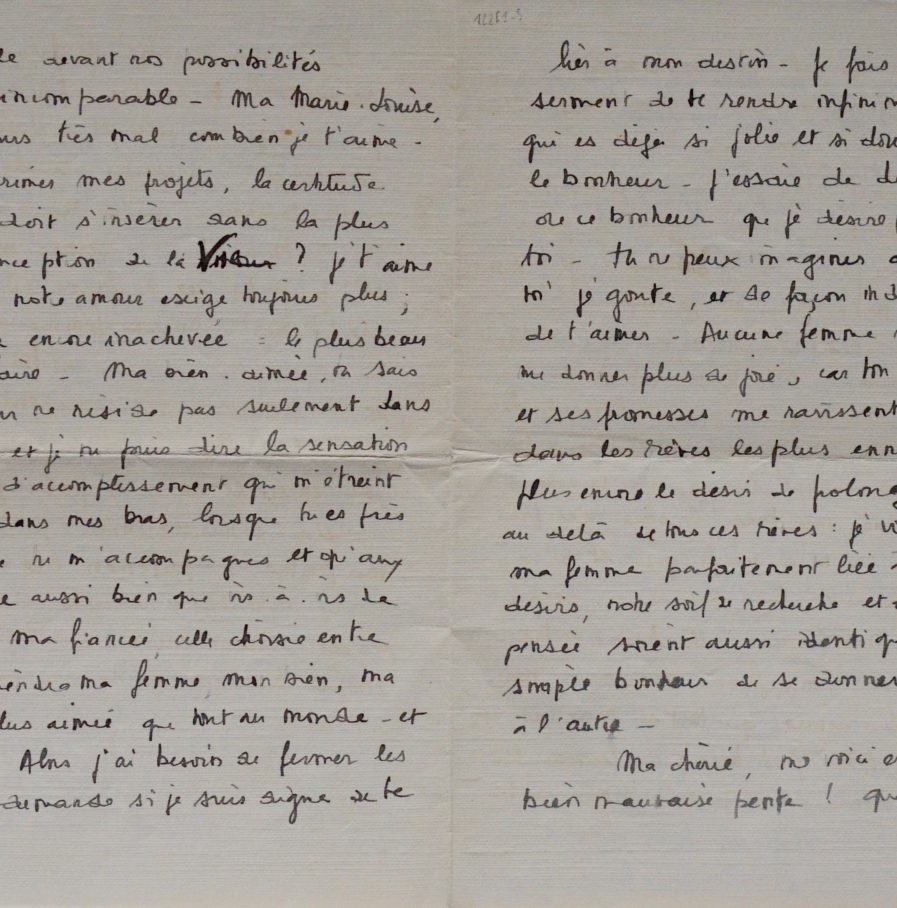 devant nos possibilités
incomparable - Ma Marie-Louise,
très mal combien je t'aime -
mes projets, la certitude
doit s'insérer dans la plus
de la ? je t'aime
notre amour exige toujours plus ;
encore inachevée = le plus beau
- Ma bien-aimée, tu sais
ne réside pas seulement dans
et je ne puis dire la sensation
d'accomplissement qui m'étreint
dans mes bras, lorsque tu es près
tu m'accompagnes et qu'aux
aussi bien que vis-à-vis de
ma fiancée, celle choisie entre
ma femme, mon bien, ma
plus aimée que tout au monde - et
Alors j'ai besoin de fermer les
demande si je suis digne de te
12251-5
liés à mon destin - Je fais
serment de te rendre
qui es déjà si jolie et si
le bonheur - J'essaie de
de ce bonheur que je désire
toi - tu ne peux imaginer
toi je goute, et de façon
de t'aimer - Aucune femme
me donner plus de joie, car ton
et ses promesses me ravissent
dans les rêves les plus
plus encore le désir de
au delà de tous ces rêves : je
ma femme parfaitement liée
désirs, notre soif de recherche et
pensée soient aussi
simple bonheur de se donner
à l'autre -
Ma chérie, me voici
bien mauvaise pente !